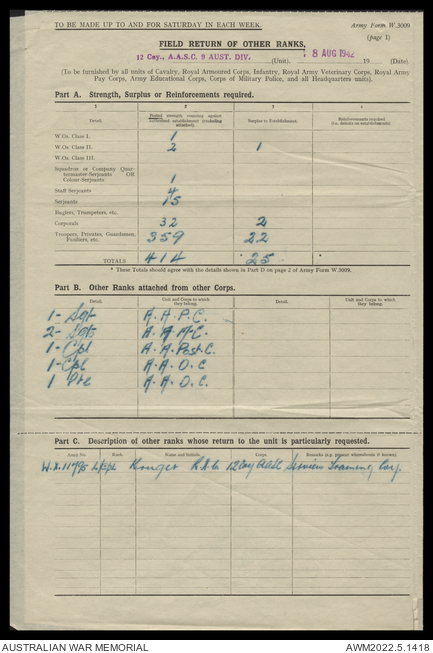 TO BE MADE UP TO AND FOR SATURDAY IN EACH WEEK.
Army Form W.3009
(page 1)
FIELD RETURN OF OTHER RANKS,
12 Coy., A.A.S.C. 9 AUST. DIV. (Unit). 8 AUG 1942 19 (Date)
(To be furnished by all units of Cavalry, Royal Armoured Corps, Infantry, Royal Army Veterinary Corps, Royal Army
Pay Corps, Army Educational Corps, Corps of Military Police, and all Headquarters units).
Part A. Strength, Surplus or Reinforcements required.
1 2 3 4
Detail. Posted strength counting against authorised establishment (excluding attached). Surplus to Establishment. Reinforcements required (i.e. deficits on establishment).
W.Os. Class I. 1
W.Os. Class II. 2 1
W.Os. Class III.
Squadron or Company Quar-
termaster-Serjeants OR
Colour-Serjeants 1
Staff Serjeants 4
Serjeants 15
Buglers, Trumpeters, etc.
Corporals 32 2
Troopers, Privates, Guardsmen,
Fusiliers, etc. 359 22
TOTALS * 414 * 25
* These Totals should agree with the details shown in Part D on page 2 of Army Form W.3009.
Part B. Other Ranks attached from other Corps.
Detail. Unit and Corps to which they belong. Detail. Unit and Corps to which they belong.
1 - Sgt A.A.P.C.
2 - Sgts A.A.A.C.
1 - Cpl A.A.Post.C.
1 - Cpl A.A.O.C
1 Pte A.A.O.C.
Part C. Description of other ranks whose return to the unit is particularly requested.
Army No. Rank. Name and Initials. Corps. Remarks (e.g. present whereabouts if known).
Kruger 12 Coy AASC Training Coy.
AUSTRALIAN WAR MEMORIAL
AWM2022.5.1418